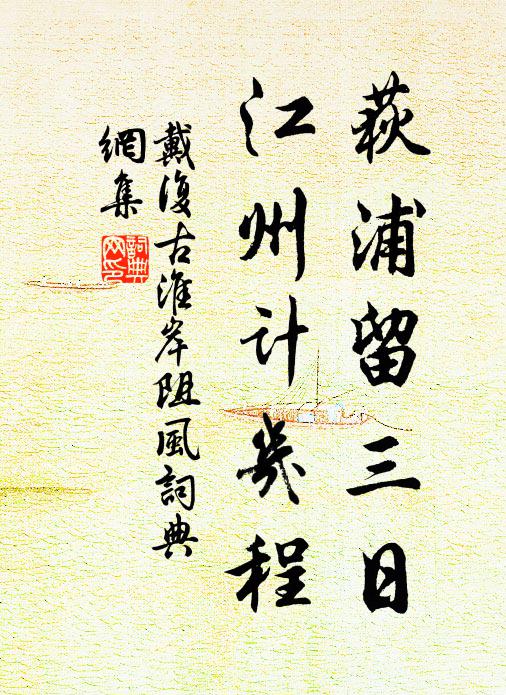 荻浦留三日
江州計幾程
戴復古淮岸阻風詞典
網集
詞典
网印